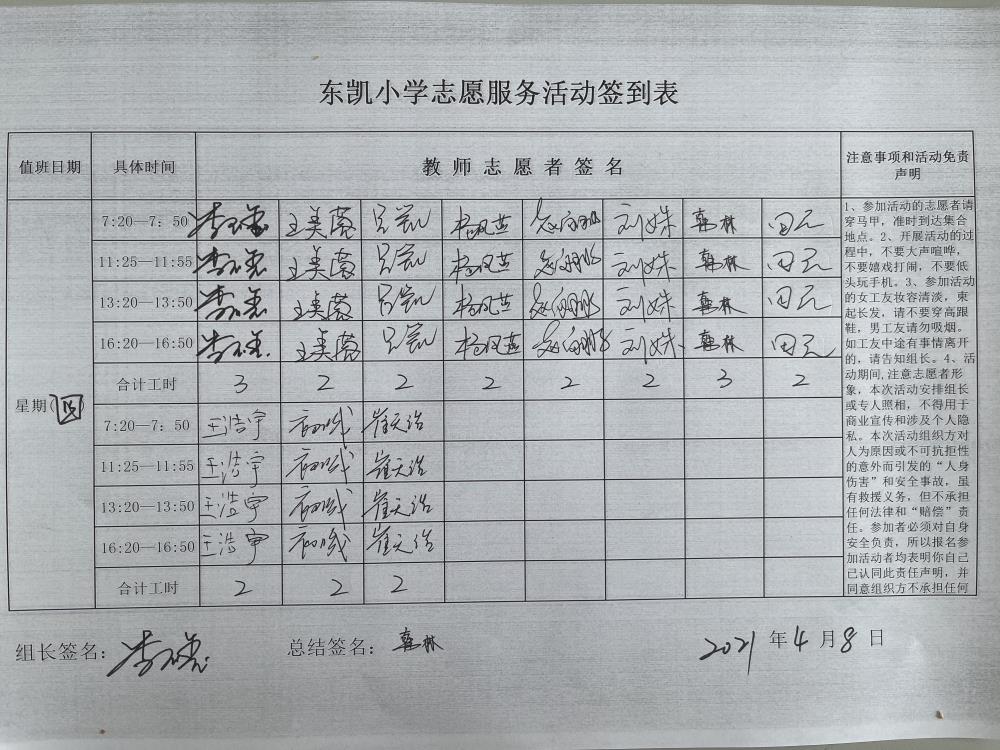 东凯小学志愿服务活动签到表
值班日期 具体时间 教师志愿者签名 注意事项和活动免责声明
星期(四)
7:20—7:50 王美蓉 吕凯 杨凤燕 刘姝 韩林 田元
11:25—11:55 王美蓉 吕凯 杨凤燕 刘姝 韩林 田元
13:20—13:50 王美蓉 吕凯 杨凤燕 刘姝 韩林 田元
16:20—16:50 王美蓉 吕凯 杨凤燕 刘姝 韩林 田元
合计工时 3 2 2 2 2 2 3 2
7:20—7:50 王浩宇 崔天浩
11:25—11:55 王浩宇 崔天浩
13:20—13:50 王浩宇 崔天浩
16:20—16:50 王浩宇 崔天浩
合计工时 2 2 2
1、参加活动的志愿者请
穿马甲,准时到达集合
地点。2、开展活动的过
程中,不要大声喧哗,
不要嬉戏打闹,不要低
头玩手机。3、参加活动
的女工友妆容清淡,束
起长发,请不要穿高跟
鞋,男工友请勿吸烟。
如工友中途有事情离开
的,请告知组长。4、活
动期间,注意志愿者形
象,本次活动安排组长
或专人照相,不得用于
商业宣传和涉及个人隐
私。本次活动组织方对
人为原因或不可抗拒性
的意外而引发的“人身
伤害”和安全事故,虽
有救援义务,但不承担
任何法律和“赔偿”责
任。参加者必须对自身
安全负责,所以报名参
加活动者均表明你自己
已认同此责任声明,并
同意组织方不承担任何
组长签名: 总结签名:韩林 2021年4月8日